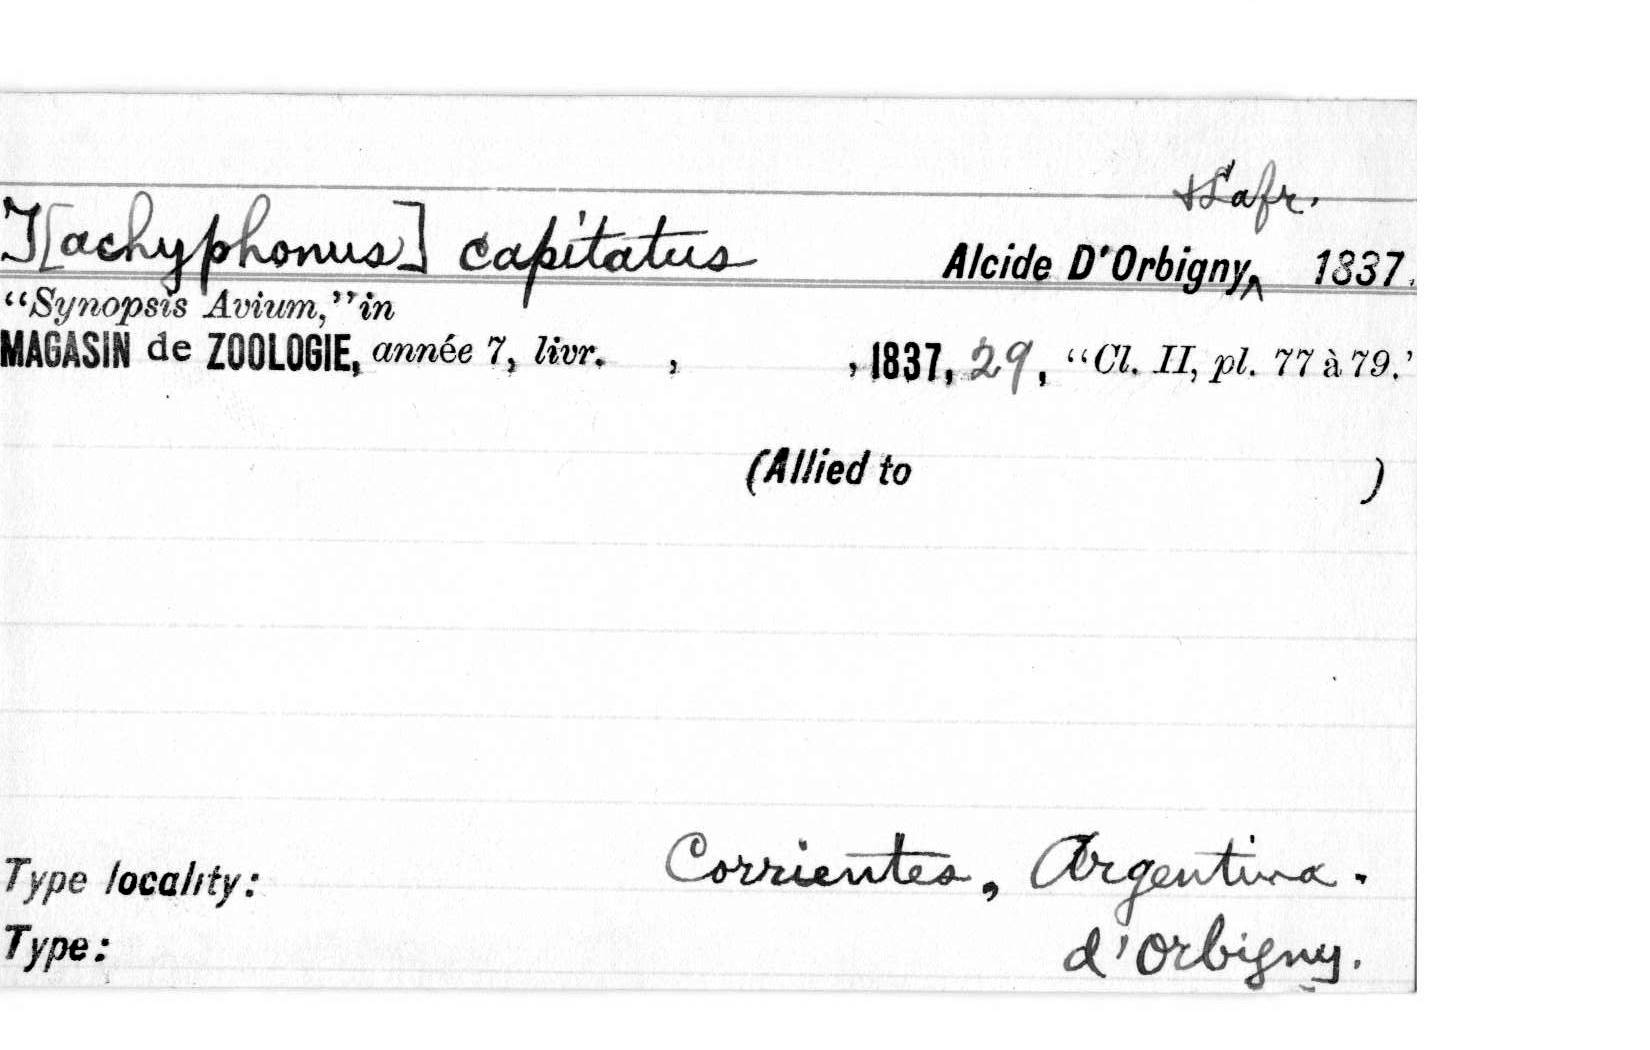 & Lafr.
T[achyphonus] capitatus Alcide D'Orbigny,^ 1837.
“Synopsis Avium,” in
MAGASIN de ZOOLOGIE, année 7, livr. , , 1837, 29, “Cl. II, pl. 77 à 79.’
(Allied to )
Type locality: Corrientes, Argentina.
Type: d'Orbigny.